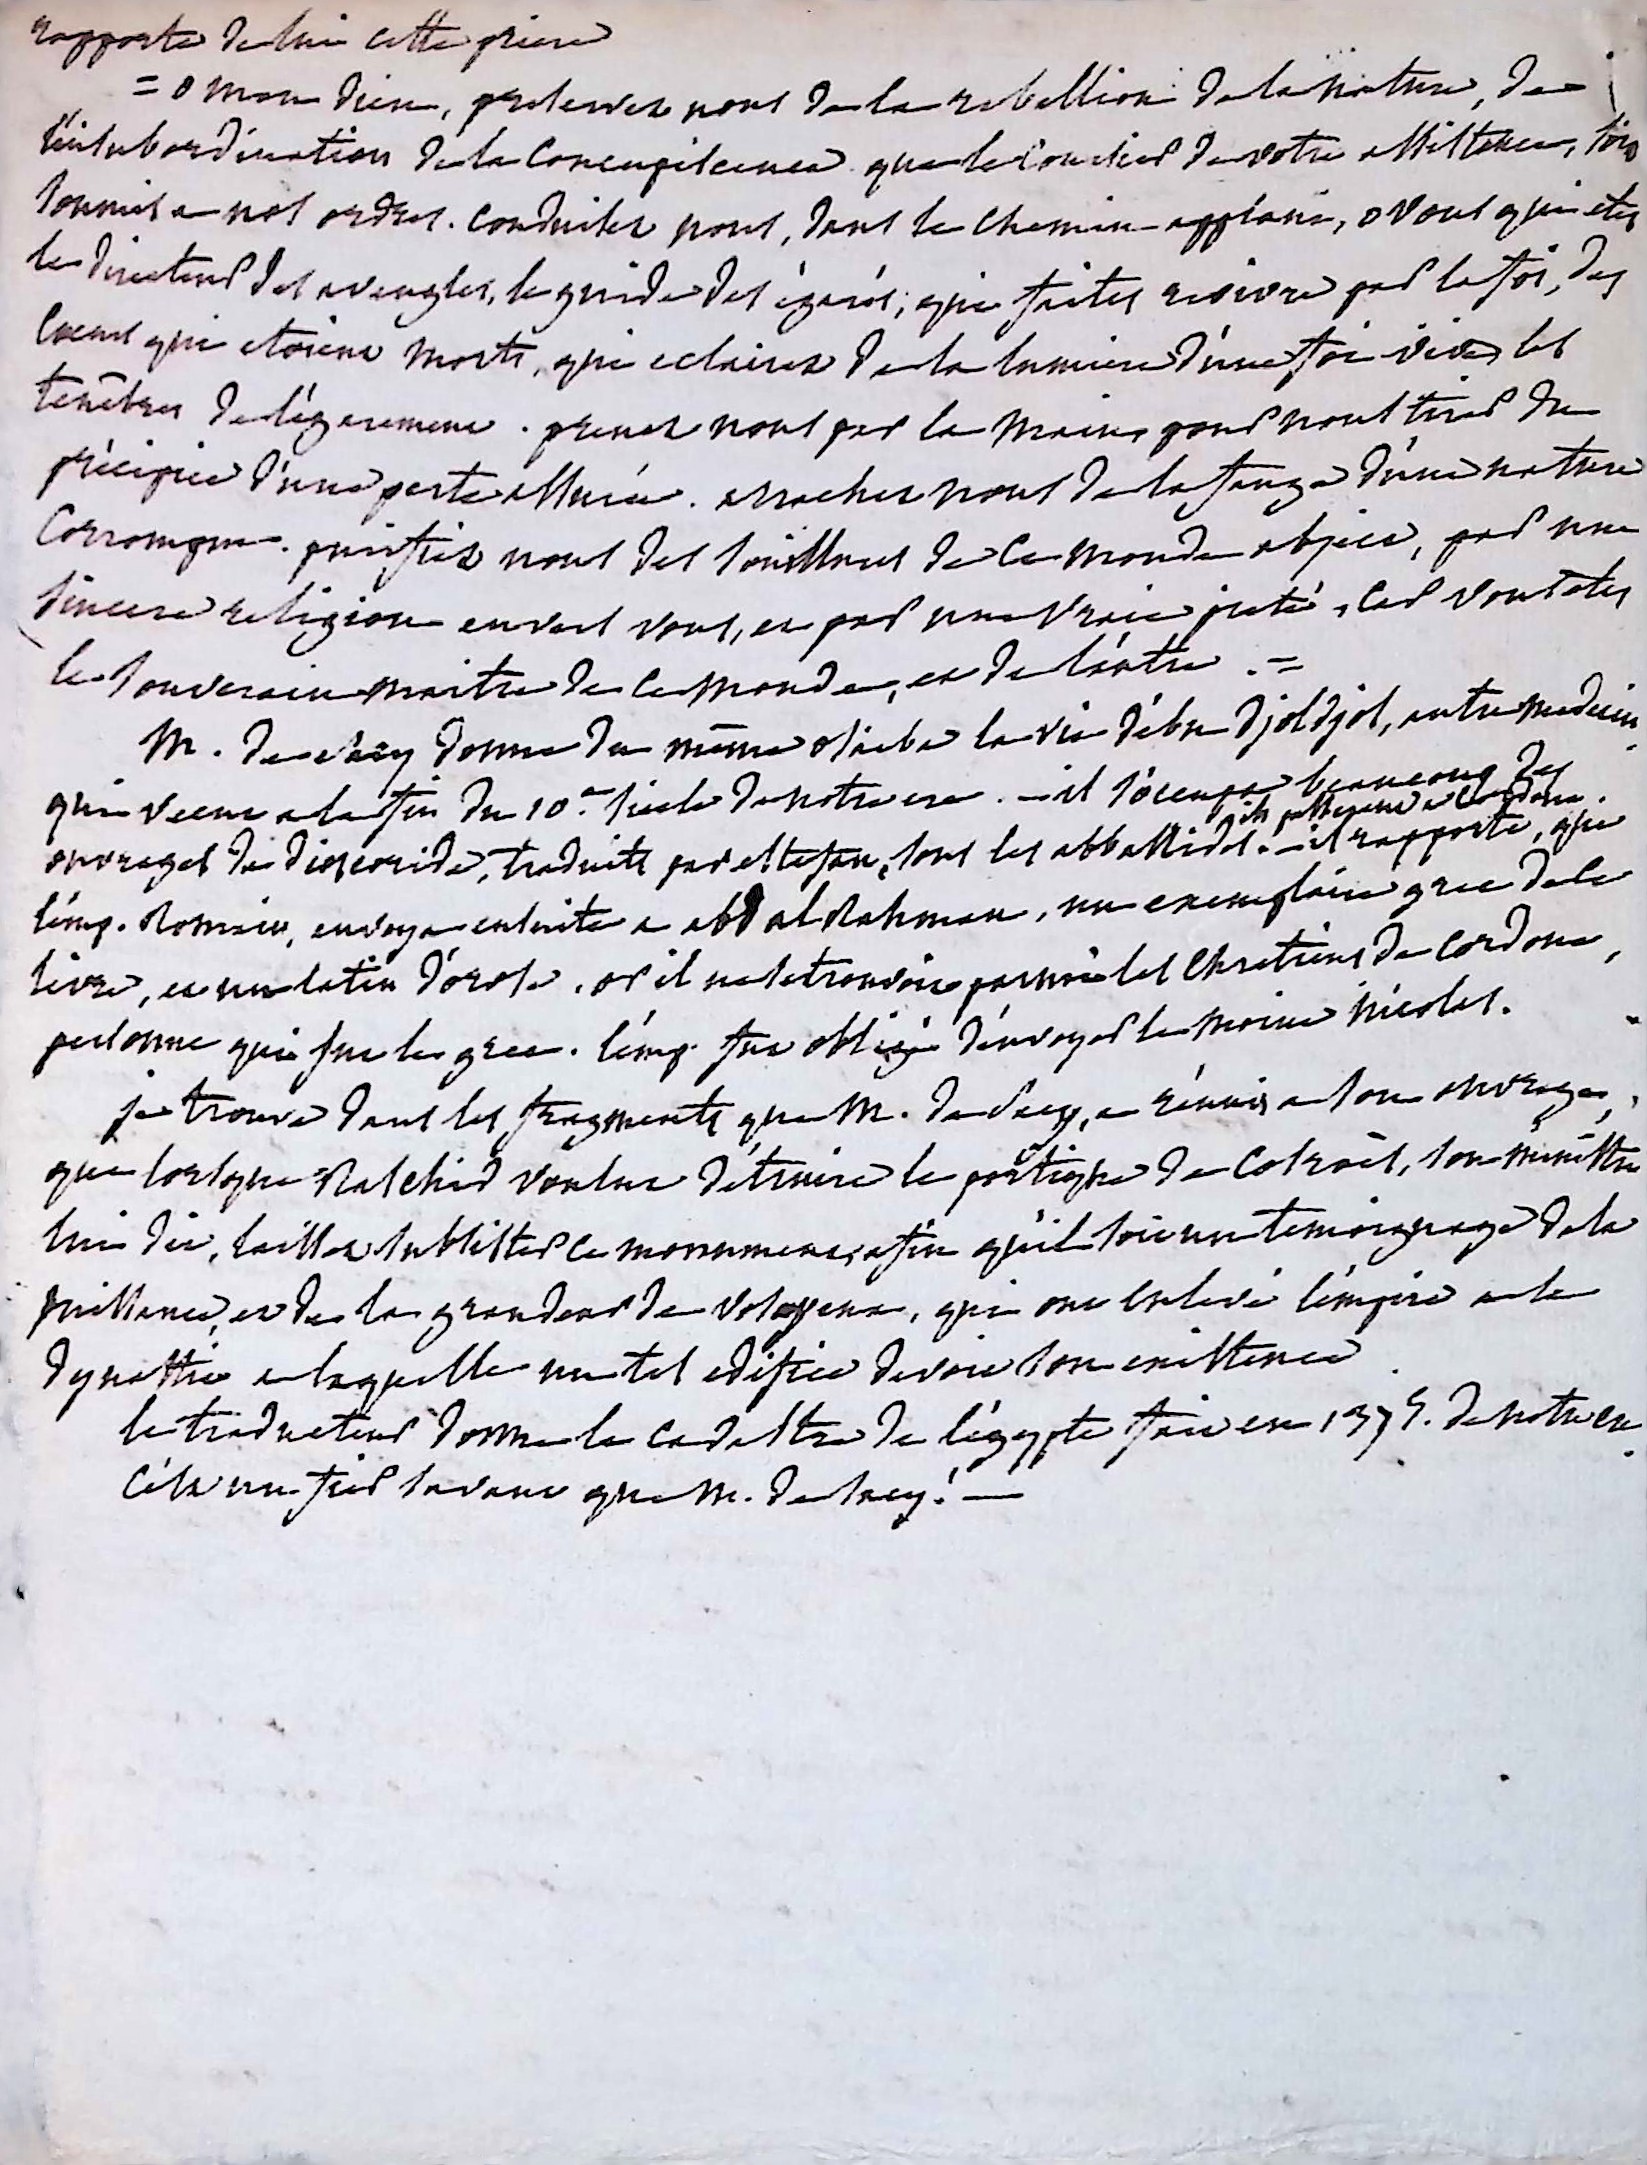 rapporte de lui cette priere
= o mon dieu, preservez nous de la rebellion de la nature, de
l'insubordination de la concupiscence que le coursier de votre assistance, soit
soumis a nos ordres. conduisez nous, dans le chemin applani, o vous qui etes
le directeur des aveugles, le guide des égarés, qui faites revivre par la foi, des
coeurs qui etoient morts, qui eclairez de la lumiere d'une foi vive, les
tenêbres de l'égarement. prenez nous par la main pour nous tirer du
précipice d'une perte assurée. arrachez nous de la fange d'une nature
corrompue. purifiez nous des souillures de ce monde abject, par une
sincere religion envers vous, et par une vraie pieté, car vous etes
le souverain maitre de ce monde, et de l'autre. =
M. de Sacy donne du même osaiba la vie d'ebn Djoldjol, autre medecin
qui vecut a la fin du 10.e siecle de notre ere. — il s'occupa beaucoup des
ouvrages de dioscoride, traduits par estefan, sous les abbassides. qui passerent a cordoue. — il rapporte, que
l'emp. Romain, envoya ensuite a abdalrahman, un exemplaire grec de ce
livre, et un latin d'orose. or il ne se trouvoit parmi les chretiens de cordoue,
personne qui sut le grec. l'emp. fut obligé d'envoyer le moine Nicolas.
je trouve dans les fragments que M. de Sacy, a réunis a son ouvrage,
que lorsque Raschid voulut détruire le portique de Cosroès, son ministre
lui dit, laissez subsister ce monument, afin qu'il soit un temoignage de la
puissance, et de la grandeur de vos ayeux, qui ont enlevé l'empire a la
dynastie a laquelle un tel edifice devoit son existence
le traducteur donne le cadastre de l'égypte fait en 1375. de notre ere.
c'est un fier savant que M. de Sacy! —